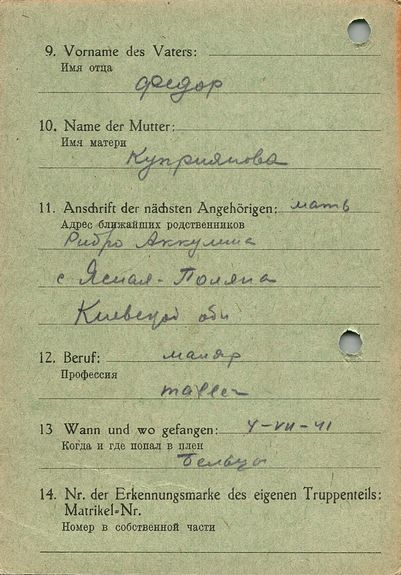 9. Vorname des Vaters:
Имя отца
Федор
10. Name der Mutter:
Имя матери
Куприянова
11. Anschrift der nächsten Angehörigen: мать
Адрес ближайших родственников
с Ясная-Поляна
Киевской обл
12. Beruf: маляр
Профессия
maller
13 Wann und wo gefangen: 4-VII-41
Когда и где попал в плен
Бельцы
14. Nr. der Erkennungsmarke des eigenen Truppenteils:
Matrikel=Nr.
Номер в собственной части